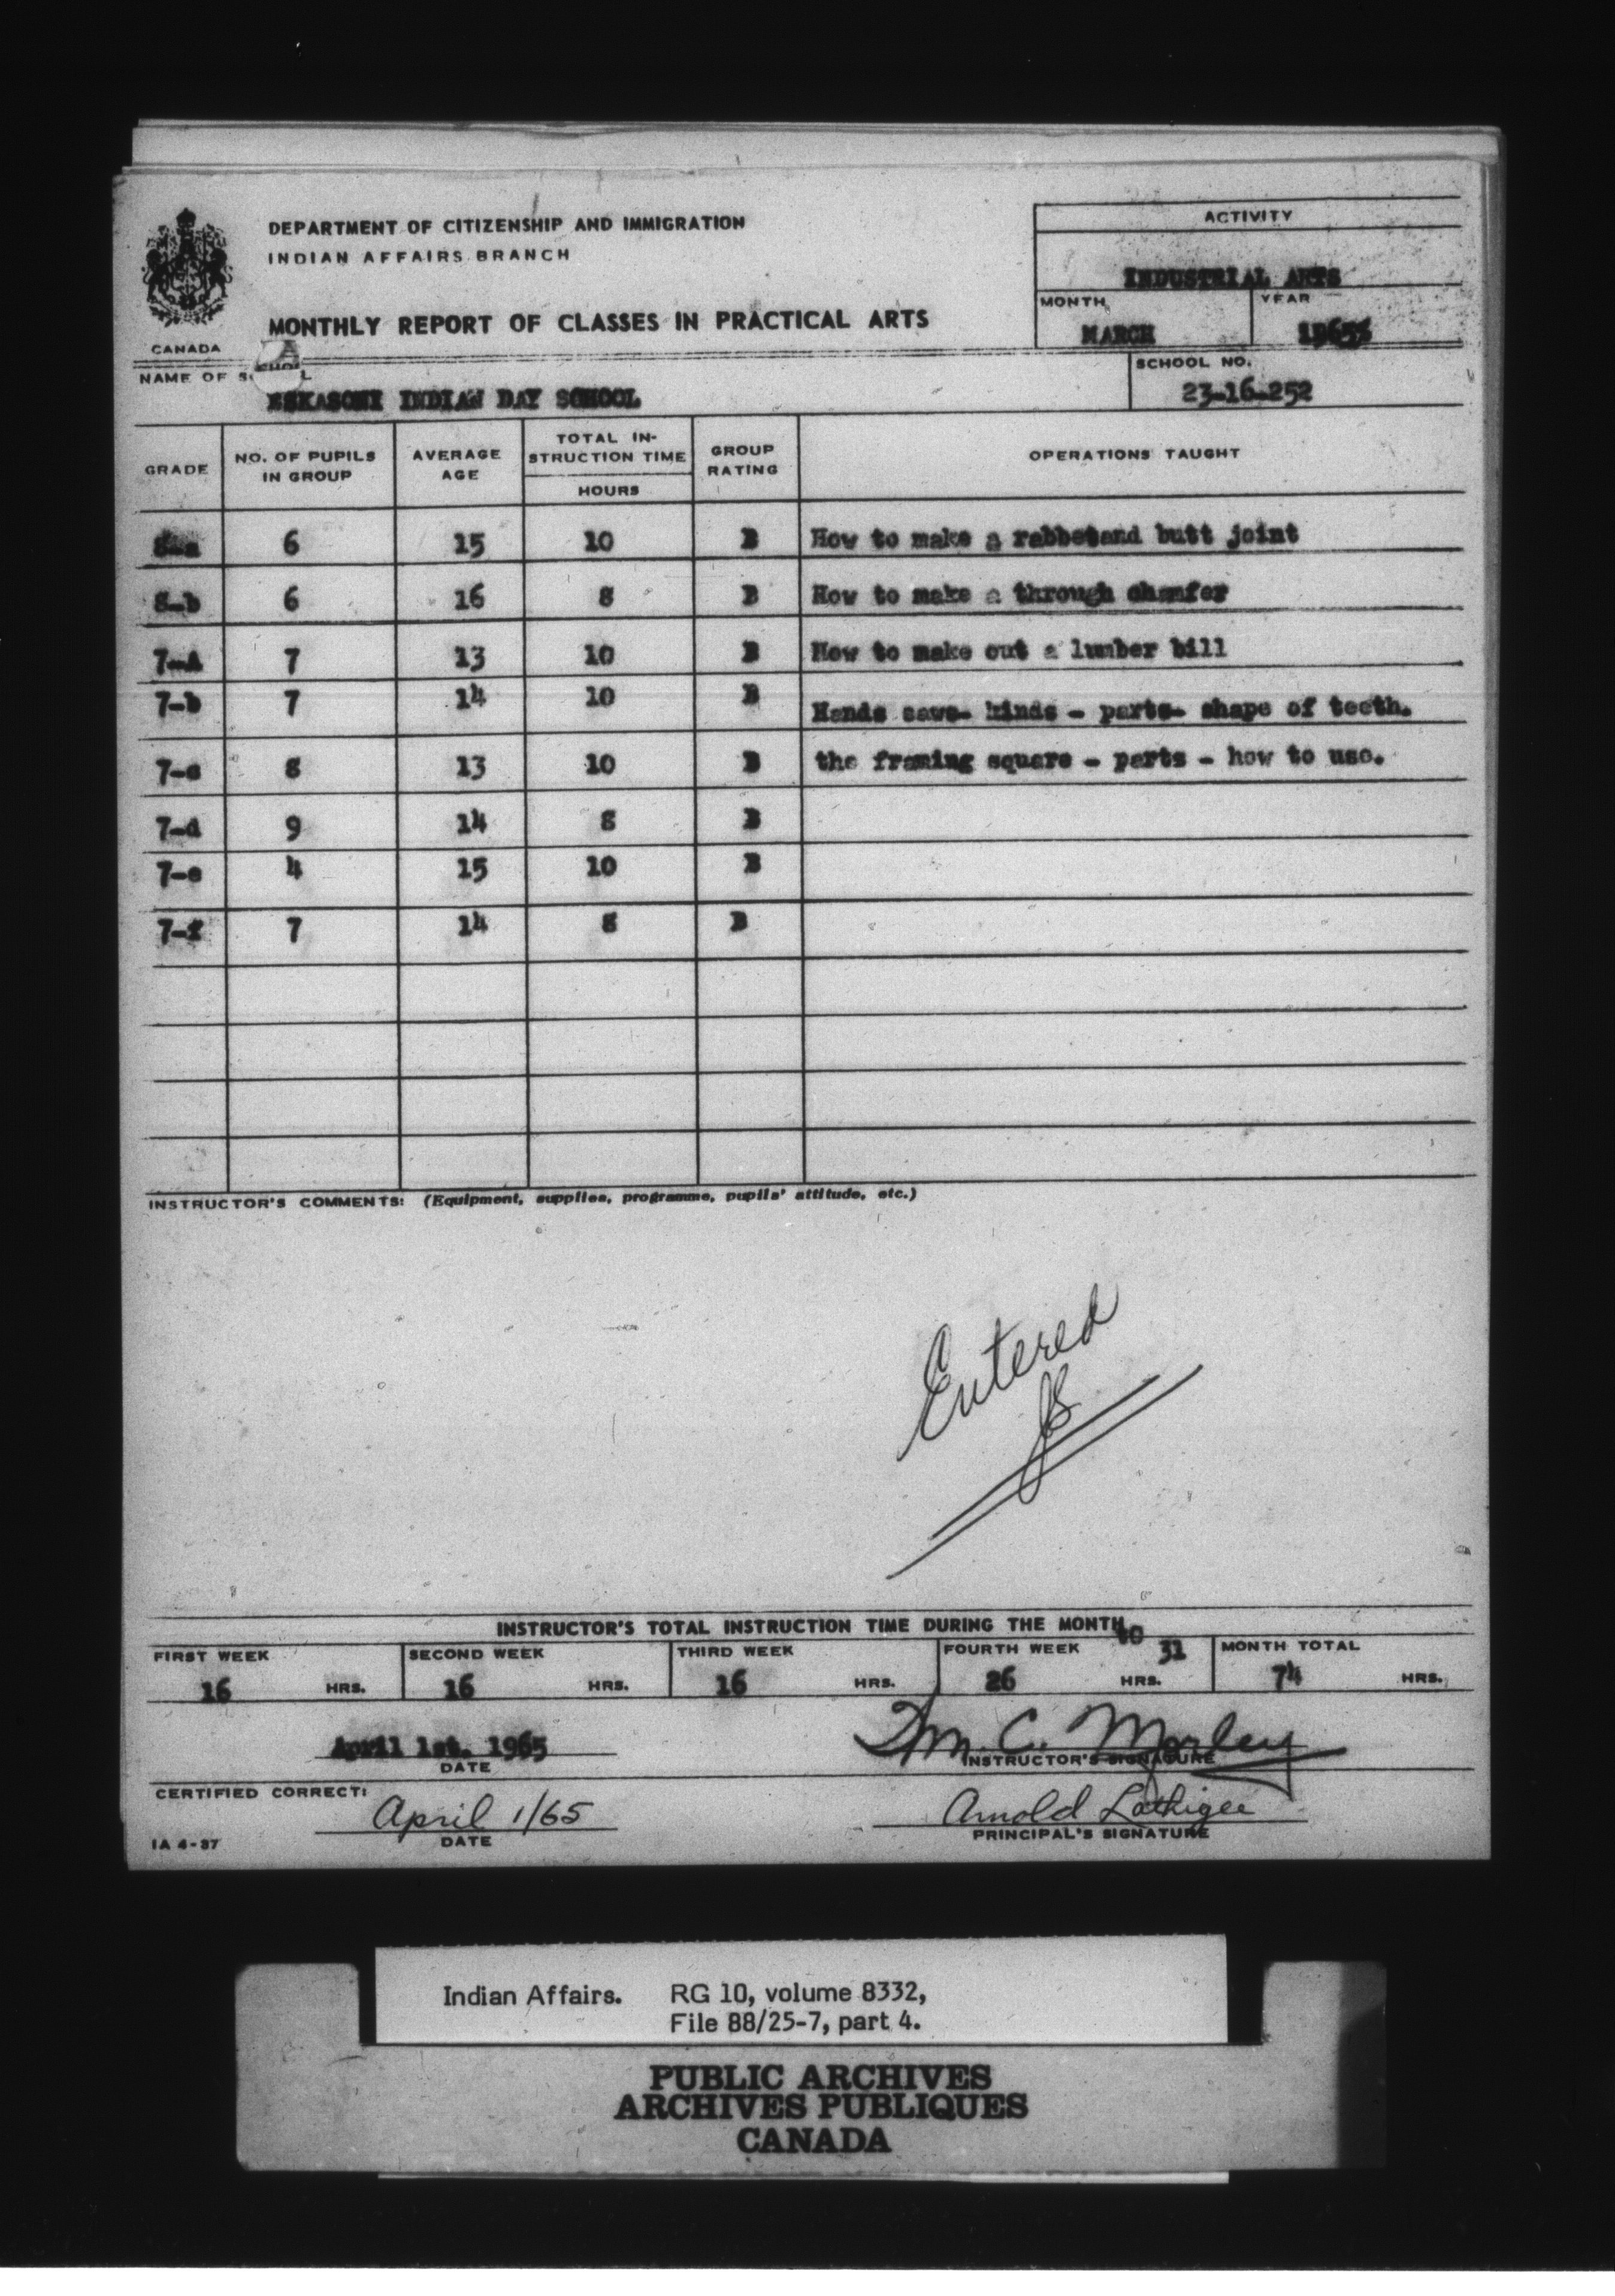 DEPARTMENT OF CITIZENSHIP AND IMMIGRATION
INDIAN AFFAIRS BRANCH
MONTHLY REPORT OF CLASSES IN PRACTICAL ARTS
CANADA
ACTIVITY
INDUSTRIAL ARTS
MONTH YEAR
MARCH 1965
NAME OF SCHOOL
ESKASONI INDIAN DAY SCHOOL
SCHOOL NO.
23-16-252
GRADE NO. OF PUPILS IN GROUP AVERAGE AGE TOTAL INSTRUCTION TIME HOURS GROUP RATING OPERATIONS TAUGHT
8-a 6 15 10 B How to make a rabbetand butt joint
8-b 6 16 8 B How to make a through chamfer
7-A 7 13 10 B How to make out a lumber bill
7-b 7 14 10 B Hands saws- kinds - parts- shape of teeth.
7-c 8 13 10 B the framing square - parts - how to use.
7-d 9 14 8 B
7-e 4 15 10 B
7-f 7 14 8 B
INSTRUCTOR'S COMMENTS: (Equipment, supplies, programme, pupils' attitude, etc.)
Entered
INSTRUCTOR'S TOTAL INSTRUCTION TIME DURING THE MONTH
FIRST WEEK SECOND WEEK THIRD WEEK FOURTH WEEK to 31 MONTH TOTAL
16 HRS. 16 HRS. 16 HRS. 26 HRS. 74 HRS.
April 1st. 1965 Wm. C. Morley
DATE INSTRUCTOR'S SIGNATURE
CERTIFIED CORRECT:
April 1/65 Arnold Lathigee
IA 4-37 DATE PRINCIPAL'S SIGNATURE
Indian Affairs. RG 10, volume 8332,
File 88/25-7, part 4.
PUBLIC ARCHIVES
ARCHIVES PUBLIQUES
CANADA